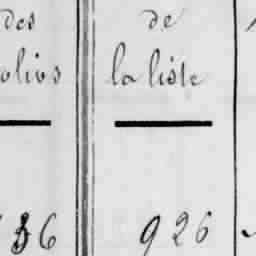 des
olivs
de
la liste
36
926